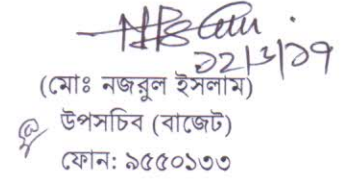 ১২/৩/১৭
(মোঃ নজরুল ইসলাম)
উপসচিব (বাজেট)
ফোন: ৯৫৫০১৩৩